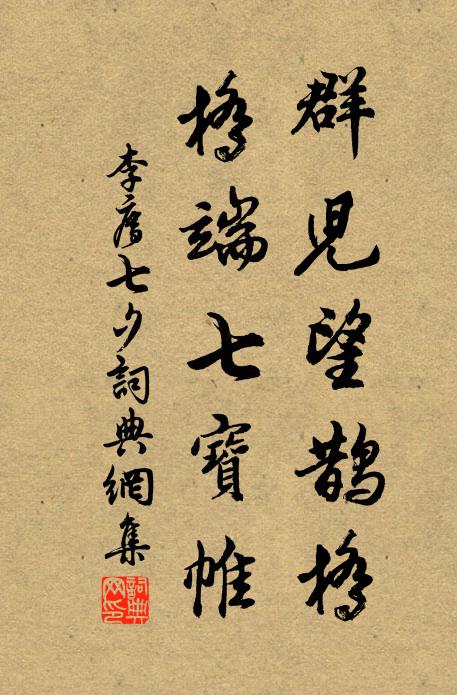 群兒望鵲橋
橋端七寶帷
李廌七夕詞典網集
詞典网印